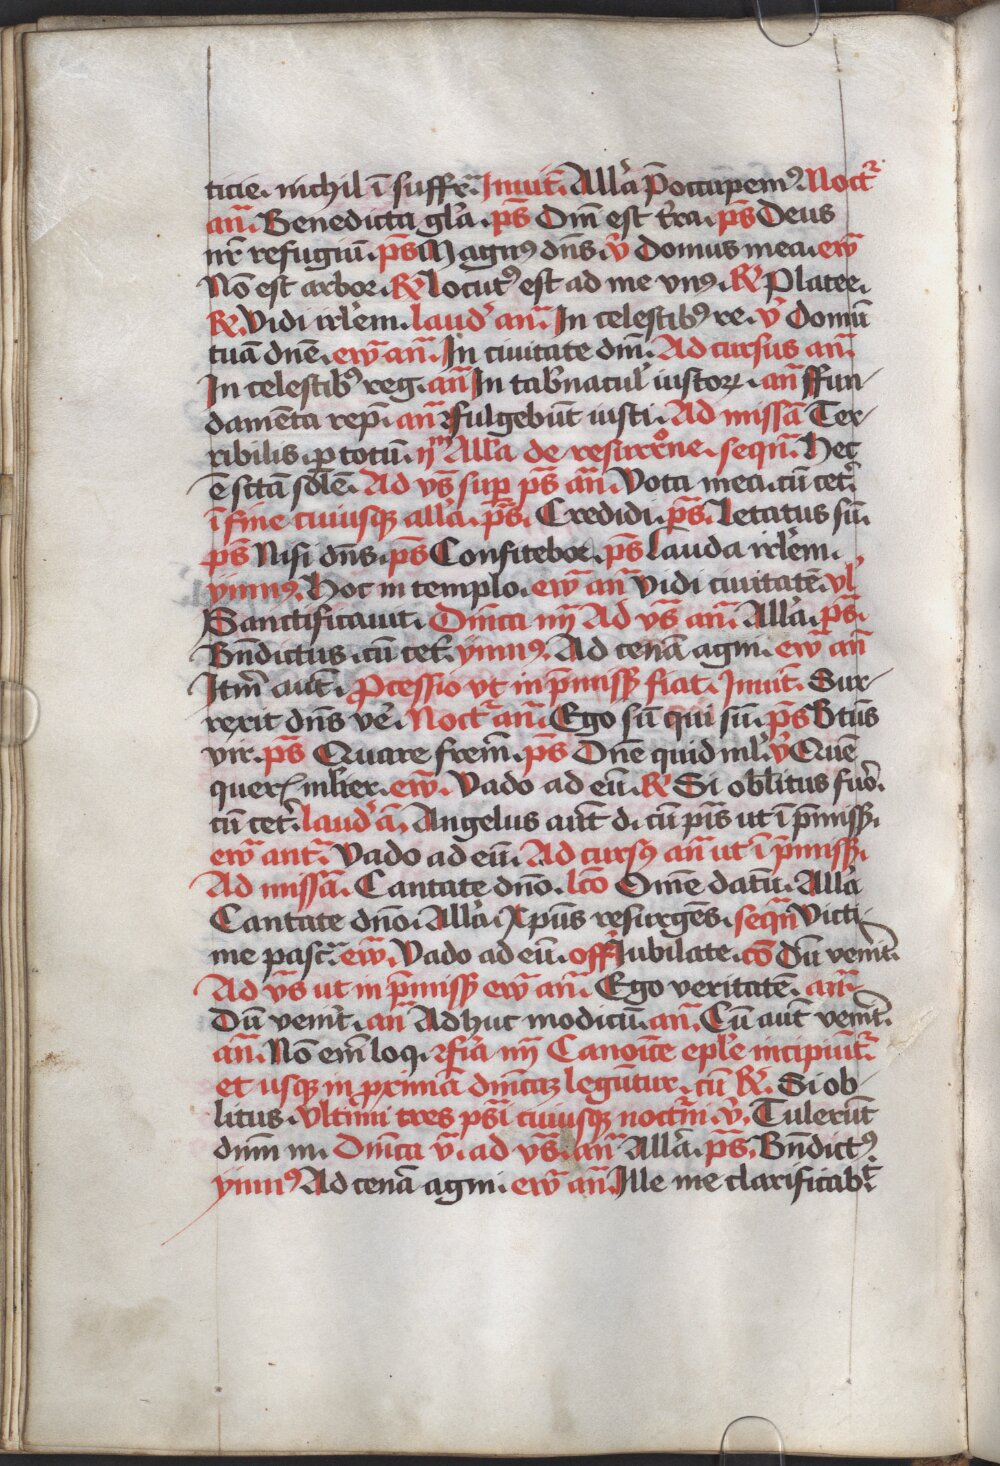 ticie. nichil ī suffr̄. Inuit̄. All'a P̄occupem⁹. Noct²
an̄. Benedicta gl'a. ps̄ Dn̄i est t'ra. ps̄ Deus
nr̄ refugiū. ps̄ Magn⁹ dn̄s. v̄ Domus mea. ew̄
Nō est arbor. R̄ Locut⁹ est ad me vn⁹. R̄ Platee.
R̄. Vidi irl'em. laud' an̄. In celestib⁹ re. v̄ Domū
tuā dn̄e. ew̄ an̄. In ciuitate dn̄i. Ad cursus an̄.
In celestib⁹ reg. an̄ In tab'nacul' iustorꝝ. an̄ ffun
damēta rep̄. an̄ ffulgebūt iusti. Ad missā Ter
ribilis. ꝑ totū. ijᵐ All'a de resurrōne. seqn̄. Hec
ē sct̄a sol'ē. Ad vs̄ suꝑ ps̄ an̄. Vota mea. cū cet'.
ī fine cuiusqꝫ all'a. ps̄. Credidi. ps̄. Letatus sū.
ps̄ Nisi dn̄s. ps̄ Confitebor. ps̄ Lauda irl'em.
ymn⁹. Hoc in templo. ew̄ an̄ Vidi ciuitatē. vl'
Sanctificauit. Dn̄ica iiij Ad vs̄ an̄. All'a. ps̄.
Bn̄dictus. cū cet'. ymn⁹. Ad cenā agni. ew̄ an̄
Itm̄ aut̄. Ꝓcessio vt in p̄missꝫ fiat. Inuit̄. Sur
rexit dn̄s ve'. Noct' an̄. Ego sū qui sū. ps̄ Bt̄us
vir. ps̄ Quare frem̄. ps̄ Dn̄e quid ml'. v̄ Quē
quer̄ ml'ier. ew̄. Vado ad eū. R̄ Si oblitus fu'o.
cū cet'. laud' ā. Angelus aut̄ d. cū ps̄is ut ī p̄missꝫ.
ew̄ ant̄. Vado ad eū. Ad curs⁹ an̄ ut ī p̄missꝫ.
Ad missā. Cantate dn̄o. lc̄o Om̄e datū. All'a
Cantate dn̄o. All'a. Xp̄us resurgēs. seqn̄ Victi
me pasc̄. ew̄. Vado ad eū. off' Iubilate. cō Dū venit̄.
Ad vs̄ ut in p̄missꝫ ew̄ an̄. Ego veritatē. an̄.
Dū venit̄. an̄ Adhuc modicū. an̄. Cū aut̄ ven'it.
an̄. Nō em̄ loq. ffi'a iiij Canoīce epl'e incipiūt'.
et usqꝫ in ꝓximā dn̄icaꝫ legūtur. cū R̄. Si ob
litus. Vltimi tres ps̄i cuiusqꝫ noctn̄i. v̄. Tulerūt
dn̄m m. Dn̄ica v̄. ad vs̄. an̄ All'a. ps̄. Bn̄dict⁹
ymn⁹ Ad cenā agni. ew̄ an̄. Ille me clarificabt̄